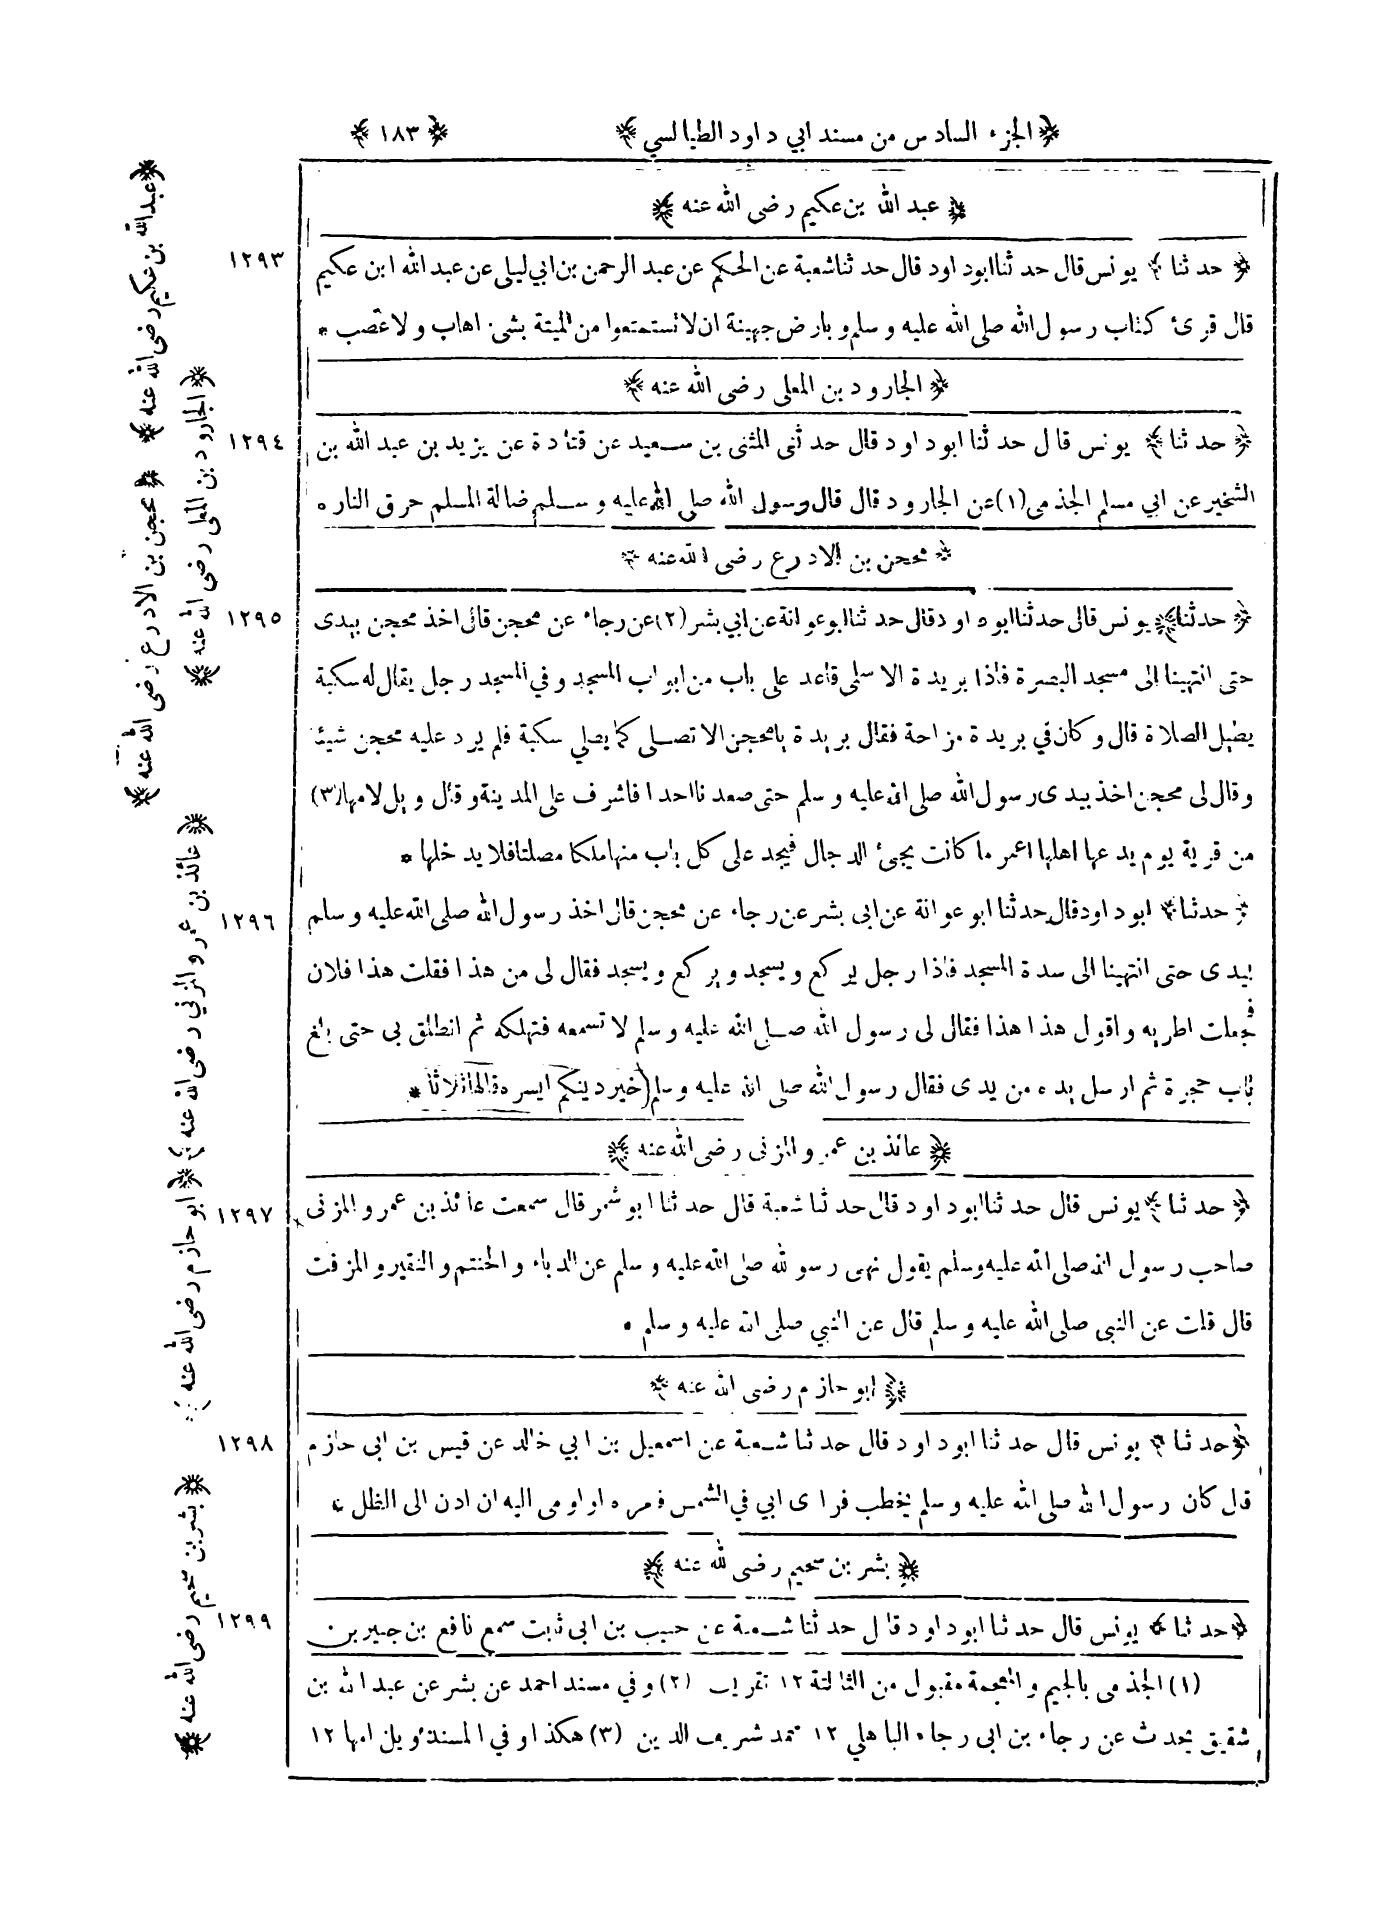 ﴿ الجزء السادس من مسند ابي داود الطيالسي ﴾ ﴿ ١٨٣ ﴾
﴿ عبد الله بن عكيم رضى الله عنه ﴾
﴿ حدثنا ﴾ يونس قال حدثنا ابو داود قال حدثنا شعبة عن الحكم عن عبد الرحمن بن ابي ليلى عن عبد الله ابن عكيم ١٢٩٣
قال قرئ كتاب رسول الله صلى الله عليه وسلم وبارض جهينة ان لا تستمتعوا من الميتة بشئ اهاب ولا عصب *
﴿ الجارود بن المعلى رضى الله عنه ﴾
﴿ حدثنا ﴾ يونس قال حدثنا ابو داود قال حدثنى المثنى بن سعيد عن قتادة عن يزيد بن عبد الله بن ١٢٩٤
الشخير عن ابي مسلم الجذمى (١) عن الجارود قال قال رسول الله صلى الله عليه وسلم ضالة المسلم حرق النار ه
﴿ محجن بن الادرع رضى الله عنه ﴾
﴿ حدثنا ﴾ يونس قال حدثنا ابو داود قال حدثنا ابو عوانة عن ابي بشر (٢) عن رجاء عن محجن قال اخذ محجن بيدى ١٢٩٥
حتى انتهينا الى مسجد البصرة فاذا بريدة الاسلمى قاعد على باب من ابواب المسجد وفي المسجد رجل يقال له سكبة
يطيل الصلاة قال وكان في بريدة مزاحة فقال بريدة يا محجن الا تصلى كما يصلي سكبة فلم يرد عليه محجن شيئا
وقال لى محجن اخذ بيدى رسول الله صلى الله عليه وسلم حتى صعدنا احدا فاشرف على المدينة وقال ويل لامها (٣)
من قرية يوم يدعها اهلها اعمر ما كانت يجئ الدجال فيجد على كل باب منها ملكا مصلتا فلا يدخلها *
﴿ حدثنا ﴾ ابو داود قال حدثنا ابو عوانة عن ابى بشر عن رجاء عن محجن قال اخذ رسول الله صلى الله عليه وسلم ١٢٩٦
بيدى حتى انتهينا الى سدة المسجد فاذا رجل يركع ويسجد ويركع ويسجد فقال لى من هذا فقلت هذا فلان
فجعلت اطريه واقول هذا هذا فقال لى رسول الله صلى الله عليه وسلم لا تسمعه فتهلكه ثم انطلق بى حتى بلغ
باب حجرة ثم ارسل يده من يدى فقال رسول الله صلى الله عليه وسلم (خير دينكم ايسره قالها ثلاثا *
﴿ عائذ بن عمرو المزنى رضى الله عنه ﴾
﴿ حدثنا ﴾ يونس قال حدثنا ابو داود قال حدثنا شعبة قال حدثنا ابو شمر قال سمعت عائذ بن عمرو المزنى ١٢٩٧
صاحب رسول الله صلى الله عليه وسلم يقول نهى رسول الله صلى الله عليه وسلم عن الدباء والحنتم والنقير والمزفت
قال قلت عن النبى صلى الله عليه وسلم قال عن النبي صلى الله عليه وسلم *
﴿ ابو حازم رضى الله عنه ﴾
﴿ حدثنا ﴾ يونس قال حدثنا ابو داود قال حدثنا شعبة عن اسمعيل بن ابي خالد عن قيس بن ابى حازم ١٢٩٨
قال كان رسول الله صلى الله عليه وسلم يخطب فراى ابي في الشمس فامره او اومى اليه ان ادن الى الظل *
﴿ بشر بن سحيم رضى الله عنه ﴾
﴿ حدثنا ﴾ يونس قال حدثنا ابو داود قال حدثنا شعبة عن حبيب بن ابى ثابت سمع نافع بن جبير بن ١٢٩٩
(١) الجذمى بالجيم والمعجمة مقبول من الثالثة ١٢ تقريب (٢) وفي مسند احمد عن بشر عن عبد الله بن
شقيق يحدث عن رجاء بن ابى رجاء الباهلي ١٢ محمد شريف الدين (٣) هكذا وفي المسند ويل امها ١٢
﴿ عبد الله بن عكيم رضى الله عنه ﴾
﴿ الجارود بن المعلى رضى الله عنه ﴾
﴿ محجن بن الادرع رضى الله عنه ﴾
﴿ عائذ بن عمرو المزني رضى الله عنه ﴾
﴿ ابو حازم رضى الله عنه ﴾
﴿ بشر بن سحيم رضى الله عنه ﴾